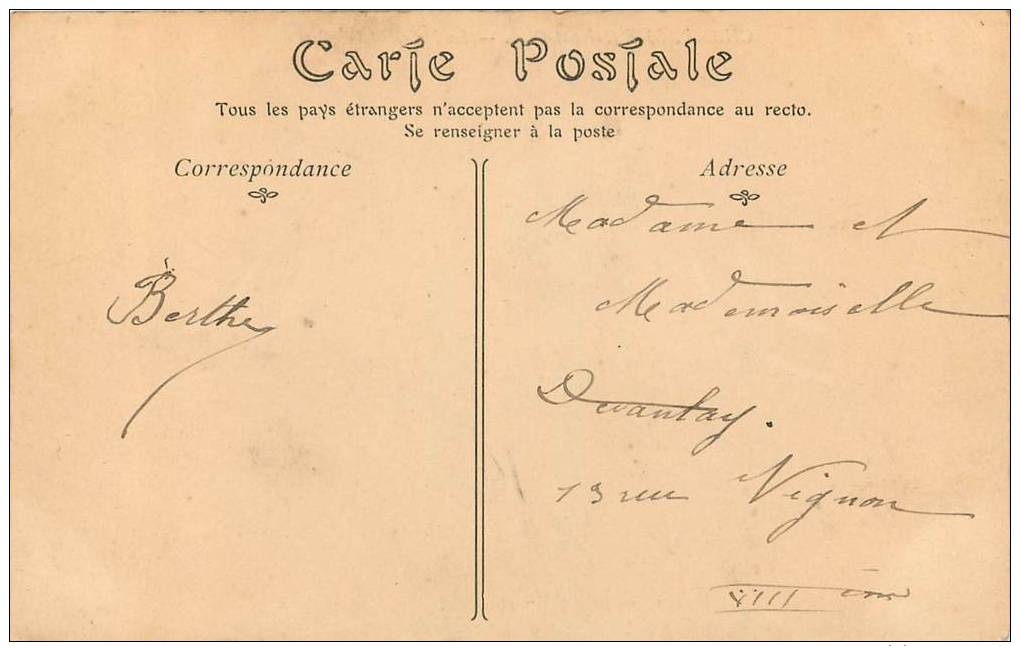 Carte Postale
Tous les pays étrangers n'acceptent pas la correspondance au recto.
Se renseigner à la poste
Correspondance
Adresse
Berthe
Madame et
Mademoiselle
Devantay.
13 rue Vignon
XIII ème